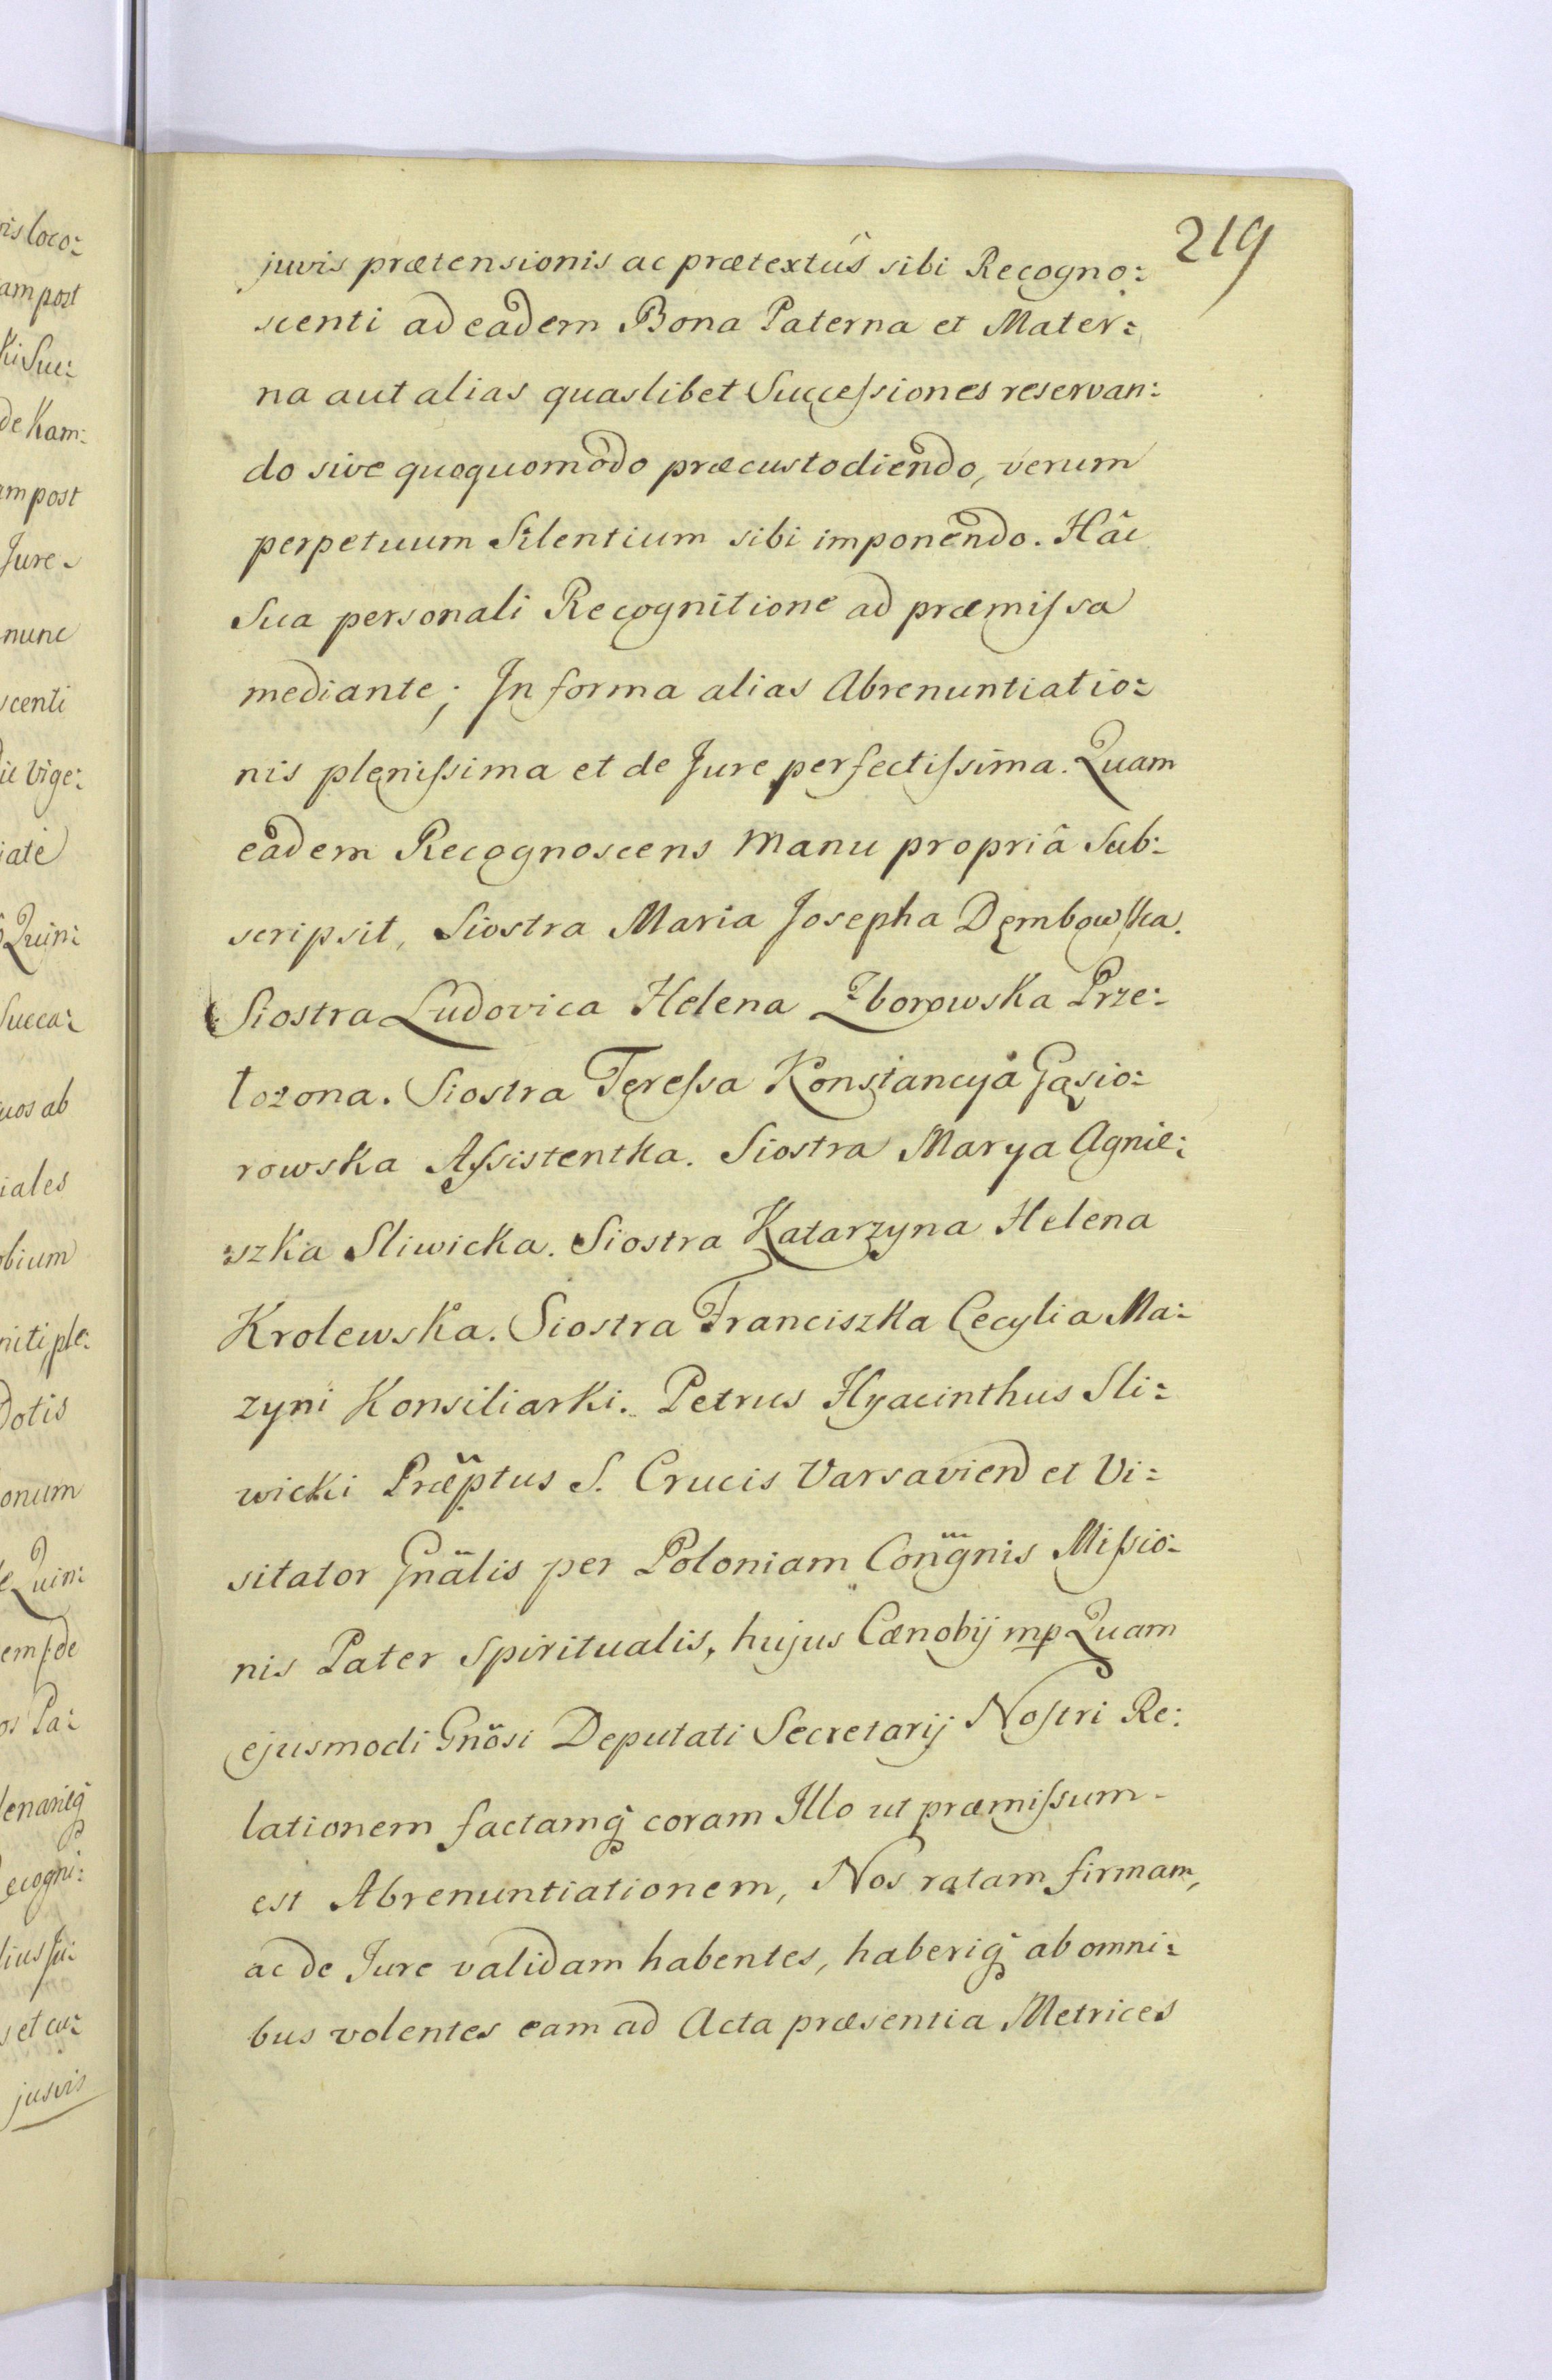 219
juris prætensionis ac prætextûs sibi Recogno:
scenti ad eadem Bona Paterna et Mater:
na aut alias quaslibet Successiones reservan:
do sive quoquomodo præcustodiendo, verum
perpetuum Silentium sibi imponendo. Hâc
Sua personali Recognitione ad præmissa
mediante; In forma alias Abrenuntiatio:
nis plenissima et de Jure perfectissima. Quam
eadem Recognoscens Manu propriâ Sub:
scripsit, Siostra Maria Josepha Dęmbowska.
Siostra Ludovica Helena Zborowska Prze:
łozona. Siostra Teressa Konstancya Gąsio:
rowska Assistentka. Siostra Marya Agnie:
szka Sliwicka. Siostra Katarzyna Helena
Krolewska. Siostra Franciszka Cecylia Ma:
zyni Konsiliarki. Petrus Hyacinthus Sli:
wicki Præptus S. Crucis Varsavien et Vi:
sitator Gnälis per Poloniam Congnis Missio:
nis Pater Spiritualis, hujus Cænobij mp Quam
ejusmodi Gnösi Deputati Secretarij Nostri Re:
lationem factamq coram Illo ut præmissum
est Abrenuntiationem, Nos ratam firmam,
ac de Jure validam habentes, haberiq ab omni:
bus volentes eam ad Acta præsentia Metrices
is loco:
am post
ki Suc:
de Kam:
am post
Jure
nunc
scenti
Vige:
iate
Quin:
Succa:
uos ab
iales
obium
niti, ple:
Dotis
onum
Quin:
em de
os Pa:
lenarieq
ecogni:
lius Ju:
s et cu:
jusvis